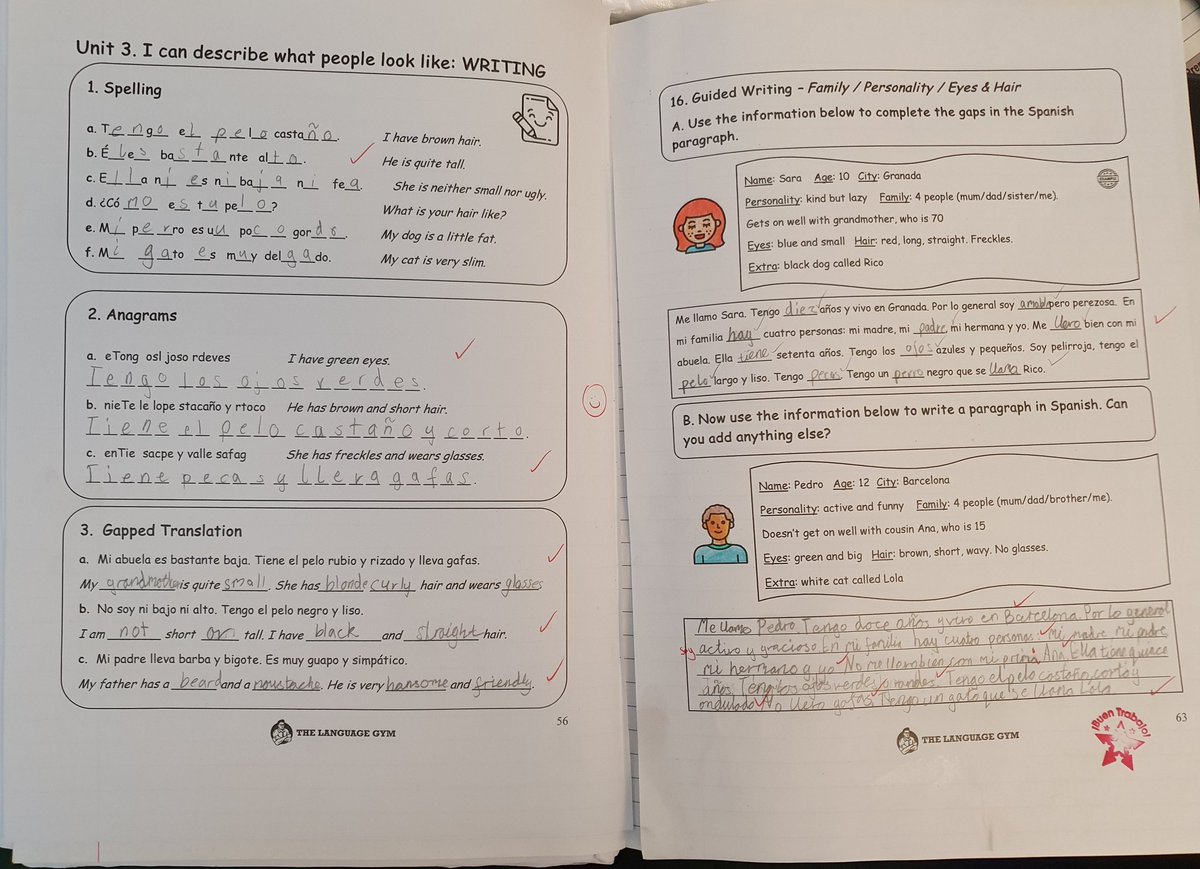 Unit 3. I can describe what people look like: WRITING
1. Spelling
a. Tengo el pelo castaño. I have brown hair.
b. Él es bastante alto. He is quite tall.
c. Ella ni es ni baja ni fea. She is neither small nor ugly.
d. ¿Cómo es tu pelo? What is your hair like?
e. Mi perro es un poco gordo. My dog is a little fat.
f. Mi gato es muy delgado. My cat is very slim.
2. Anagrams
a. eTong osl joso rdeves I have green eyes.
Tengo los ojos verdes.
b. nieTe le lope stacaño y rtoco He has brown and short hair.
Tiene el pelo castaño y corto.
c. enTie sacpe y valle safag She has freckles and wears glasses.
Tiene pecas y llera gafas.
3. Gapped Translation
a. Mi abuela es bastante baja. Tiene el pelo rubio y rizado y lleva gafas.
My grandmother is quite small. She has blonde curly hair and wears glasses
b. No soy ni bajo ni alto. Tengo el pelo negro y liso.
I am not short or tall. I have black and straight hair.
c. Mi padre lleva barba y bigote. Es muy guapo y simpático.
My father has a beard and a moustache. He is very hansome and friendly.
56
THE LANGUAGE GYM
16. Guided Writing – Family / Personality / Eyes & Hair
A. Use the information below to complete the gaps in the Spanish
paragraph.
Name: Sara Age: 10 City: Granada
Personality: kind but lazy Family: 4 people (mum/dad/sister/me).
Gets on well with grandmother, who is 70
Eyes: blue and small Hair: red, long, straight. Freckles.
Extra: black dog called Rico
Me llamo Sara. Tengo diez años y vivo en Granada. Por lo general soy amable pero perezosa. En
mi familia hay cuatro personas: mi madre, mi padre, mi hermana y yo. Me llevo bien con mi
abuela. Ella tiene setenta años. Tengo los ojos azules y pequeños. Soy pelirroja, tengo el
pelo largo y liso. Tengo pecas. Tengo un perro negro que se llama Rico.
B. Now use the information below to write a paragraph in Spanish. Can
you add anything else?
Name: Pedro Age: 12 City: Barcelona
Personality: active and funny Family: 4 people (mum/dad/brother/me).
Doesn't get on well with cousin Ana, who is 15
Eyes: green and big Hair: brown, short, wavy. No glasses.
Extra: white cat called Lola
Me llamo Pedro. Tengo doce años y vivo en Barcelona. Por lo general
soy activo y gracioso. En mi familia hay cuatro personas: Mi madre mi padre,
mi hermano y yo. No me llevo bien con mi prima Ana. Ella tiene quince
años. Tengo los ojos verdes y grandes. Tengo el pelo castaño, corto y
ondulado. No llevo gafas. Tengo un gato que se llama Lola
63
THE LANGUAGE GYM
¡Buen Trabajo!